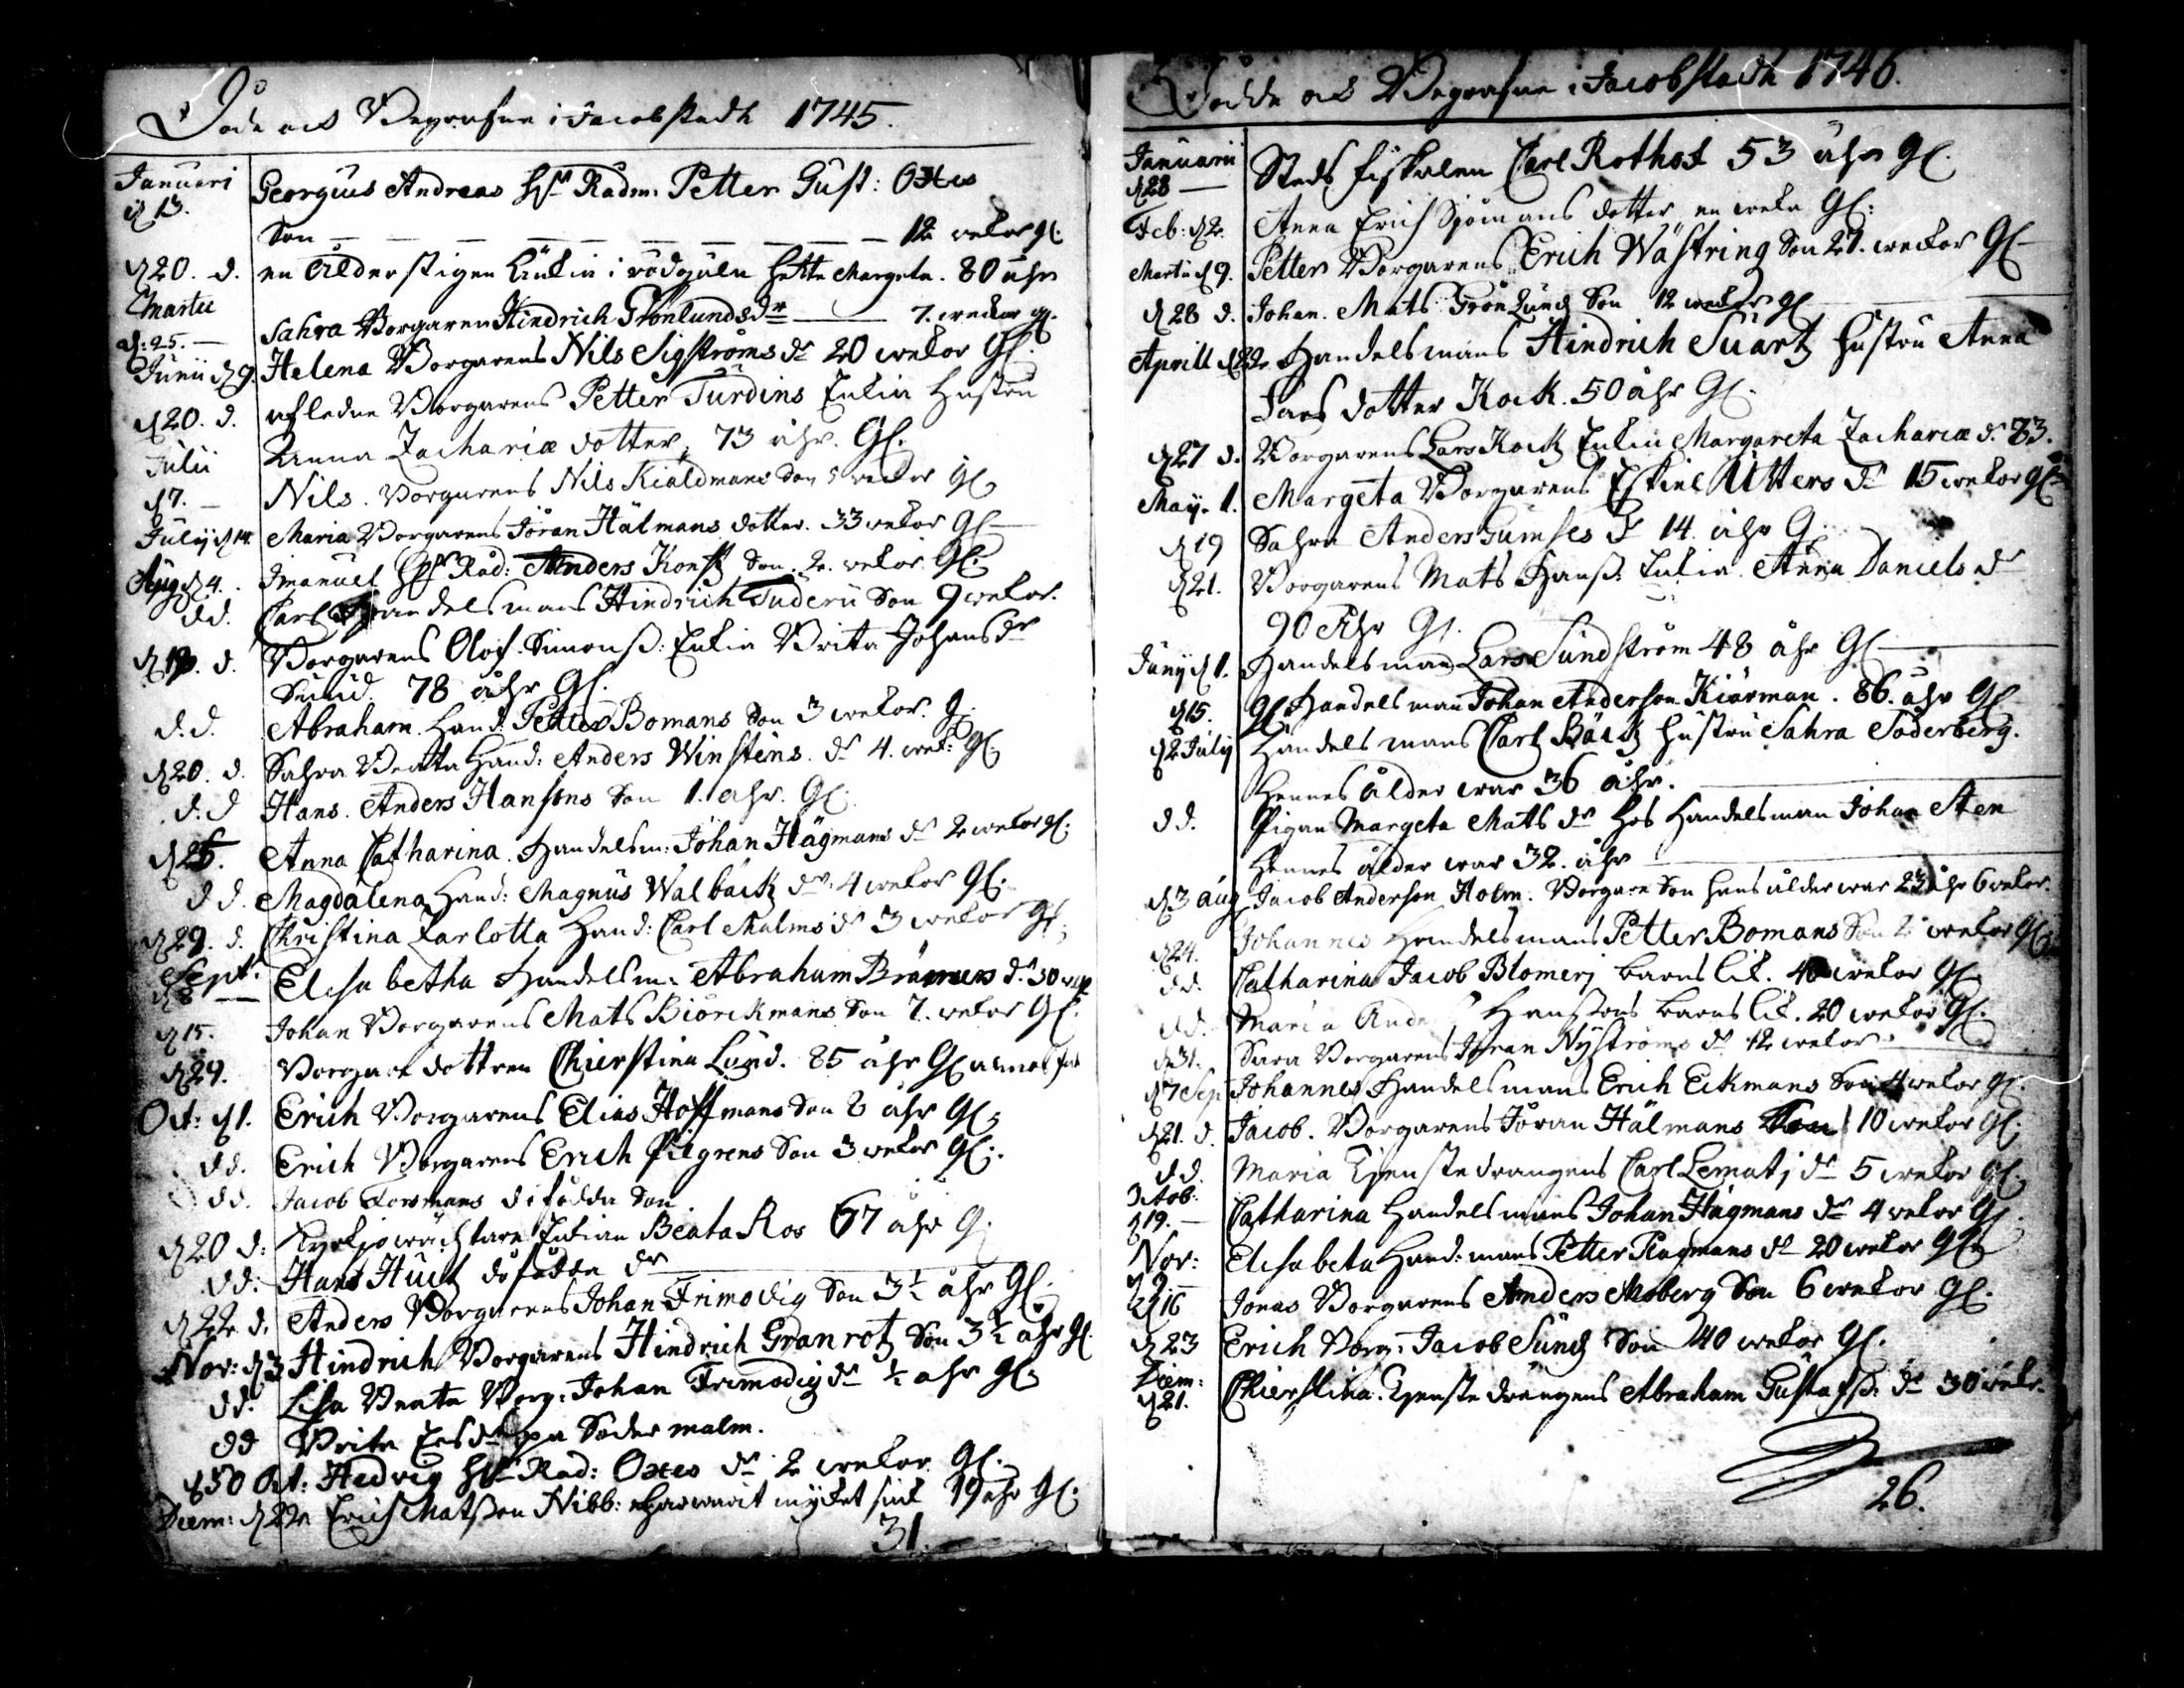 Döde och Begrafne i Jacobstadh 1745.
Januari
d 13. Georgius Andreas H:r Rådm: Petter Gust: Oxes
Son — — — — — — — — 12 wekor gl.
d 20. d. en ålderstigen Änkia i hette Margeta. 80 åhr
Martii
d: 25. — Sahra Borgaren Hindrich Grönlunds dr — 7. wekor gl.
Junii d 9. Helena Borgarens Nils Sigströms dr 20 wekor gl.
d 20. d. afledne Borgarens Petter Turdins Enkia Hustru
Anna Zachariæ dotter, 73 åhr. Gl.
Julii
d 7. — Nils. Borgarens Nils Kiäldmans Son 5 wekor gl.
Julij d 14. Maria Borgarens Jöran Hälmans dotter. 33 wekor gl —
Aug d 4. Imanuel H:r Råd: Anders Konst Son. 2. wekor. Gl.
d d. Carl Handelsmans Hindrich Tuderu Son 9 wekor.
d. Borgarens Olof Simonss: Enkia Brita Johans dr
Sund. 78 åhr Gl.
d. d. Abraham Hand: Petter Bomans Son 3 wekor. g.
d 20. d. Sahra Beata Hand: Anders Winstens. dr 4. wek: gl.
d. d Hans. Anders Hansons Son 1. ahr. Gl.
d 25. Anna Catharina. Handelsm: Johan Hägmans dr 2 wekor gl.
d d. Magdalena Hand: Magnus Walbäck dr. 4 wekor gl.
d 29. d. Christina Zarlotta Hand: Carl Malms dr 3 wekor gl.
Sept:
d 8 — Elisabetha Handelsm: Abraham dr. 30 wek
d 15. Johan Borgarens Mats Biörckmans Son 7. wekor gl.
d 29. Borgare dottren Chierstina Lund. 85 åhr Gl
Oct: d 1. Erich Borgarens Elias Hoffmans Son 8 åhr gl.
d d. Erich Borgarens Erich Pilgrens Son 3 wekor gl.
d d. Jacob Forsmans dödfödda Son
d 20 d: Kyrkiowächtare Enkian Beata Ros 67 åhr g.
d d: Hans Huct döfödda dr
d 22 d. Anders Borgarens Johan Frimodig Son 3½ åhr gl.
Nov: d 3 Hindrich Borgarens Hindrich Granrot Son 3½ åhr gl.
d d. Lisa Beata Borg: Johan Frimodig dr ½ ahr gl.
d d Brita Ersdr på Södermalm.
d 30 Oct: Hedvig H:r Rad: Oxes dr 2 wekor gl.
Decem: d 22 Erich Matsson Nibb: har warit mycket siuk 19 ahr gl.
31.
Dödde och Begrafne i Jacobstadh 1746.
Januarii
d 28 — Stads fiskalen Carl Rothof 53 åhr gl.
Feb: d 2. Anna Erich Sjömans dotter en weka Gl:
Martii d 9. Petter Borgarens Erich Wästring Son 27. weckor Gl —
d 28 d. Johan. Mats Grönlund Son 12 wekor gl
Aprill d 22 Handelsmans Hindrich Suartz hustru Anna
Lars dotter Kock. 50 åhr gl.
d 27 d. Borgarens Lars Kock Enkia Margareta Zachariæ d. 83.
May. 1. Margeta Borgarens Eskiel Utters dr 15 wekor gl.
d 19 Sahra Anders dr 14. åhr G.
d 21. Borgarens Mats Hanss: Enkia. Anna Daniels dr
90 Åhr Gl.
Juny d 1. Handelsman Lars Sundström 48 åhr Gl —
d 15. gl Handelsman Johan Anderson Kiörman. 86. åhr gl
d 2 July Handelsmans Carl Bäck hustru Sahra Söderberg.
Hennes ålder war 36 åhr.
d d. Pigan Margeta Mats dr hos Handelsman Johan Sten
Hennes ålder war 32. åhr
d 3 aug Jacob Anderson Holm. Borgare Son hans ålder war 23 åhr 6 wekor.
d 24. Johannes Handelsmans Petter Bomans Son 2 wekor gl.
d d. Catharina Jacob Blomerj barns lik. 40 wekor gl.
d d. Maria Hanssons barns lik. 20 wekor gl.
d 31. Sara Borgarens Jöran Nyströms dr 12 wekor
d 7 Sep Johannes Handelsmans Erich Eckmans Son 4 wekor gl.
d 21. d. Jacob. Borgarens Jöran Hälmans Son 10 wekor gl.
d d. Maria Tjenstedrängens Carl Lematj dr 5 wekor gl.
Octob.
d 19. — Catharina Handelsmans Johan Hägmans dr 4 wekor gl.
Nov:
d 9 — Elisabeta Hand:mans Petter Plagmans dr 20 wekor gl.
d 16 Jonas Borgarens Anders Moberg Son 6 wekor gl.
d 23 Erich Borg: Jacob Sund Son 40 wekor gl.
Decem:
d 21. Chierstina. Tjenste drängens Abraham Gustafss: dr 30 wekr.
26.